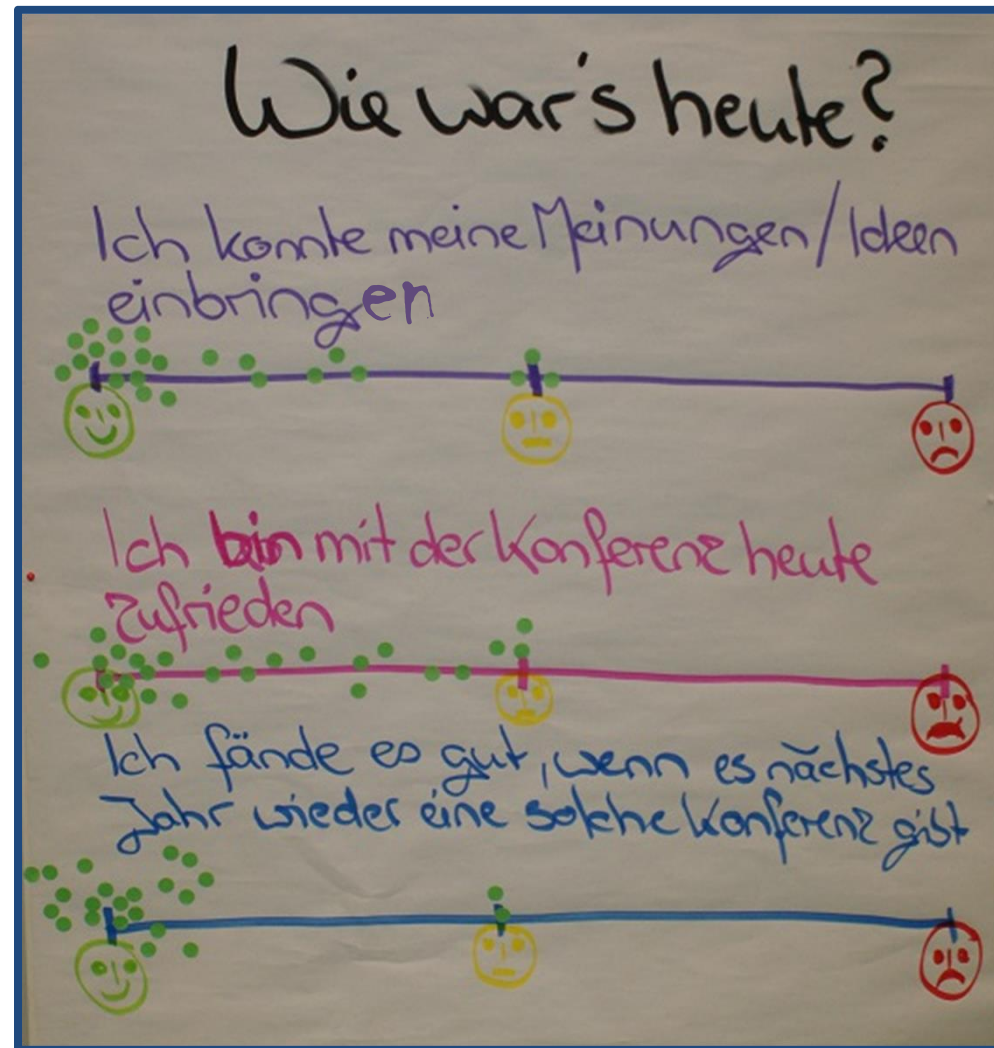 Wie war's heute?
Ich konnte meine Meinungen/Ideen
einbringen
Ich bin mit der Konferenz heute
zufrieden
Ich fände es gut, wenn es nächstes
Jahr wieder eine solche Konferenz gibt